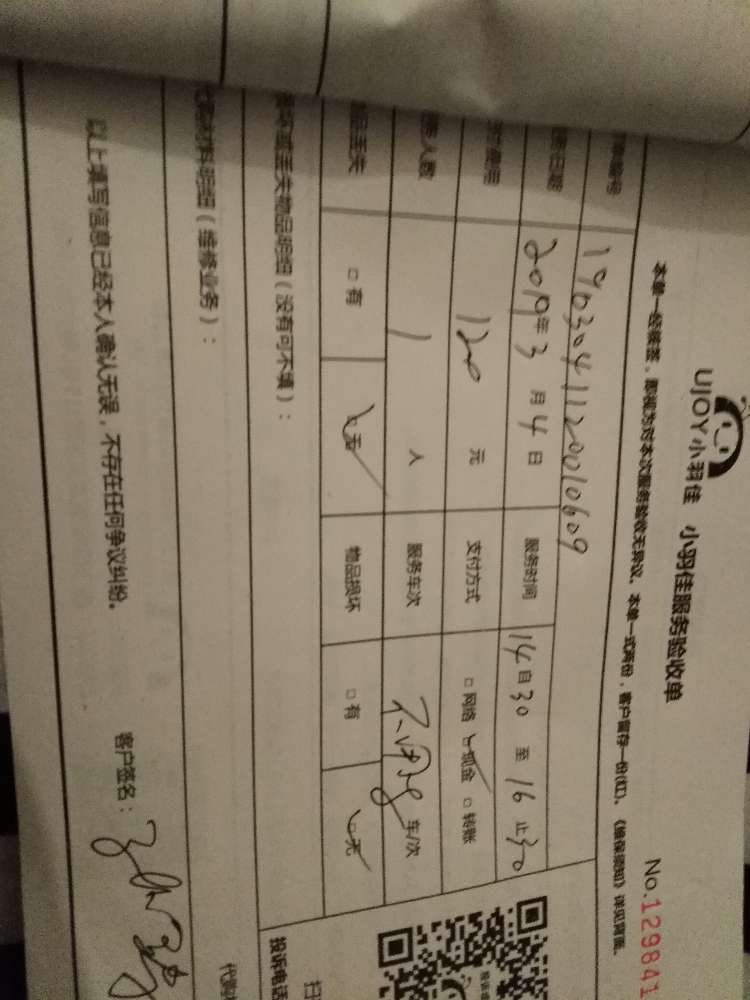 UJOY小羽佳 小羽佳服务验收单
No.129841
本单一经接签，即视为对本次服务验收无异议。本单一式两份，客户留存一份(红)。《维保须知》详见背面。
编号 19030411120010609
日期 2019年3月4日 服务时间 14自30至16止30
费用 120元 支付方式 □网络 ☑现金 □转账
人数 1人 服务车次 车/次
丢失 □有 ☑无 物品损坏 □有 ☑无
丢失物品明细（没有可不填）：
投诉电话
材料明细（维修业务）：
以上填写信息已经本人确认无误，不存在任何争议纠纷。
客户签名：